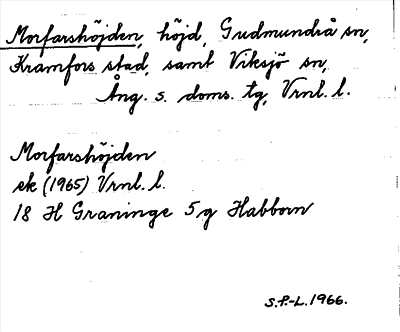 Morfarshöjden, höjd, Gudmundrå sn,
Kramfors stad, samt Viksjö sn,
Ång. s. doms. tg, Vrnl. l.
Morfarshöjden
ek (1965) Vrnl. l.
18 H Graninge 5 g Habborn
S.P.-L. 1966.